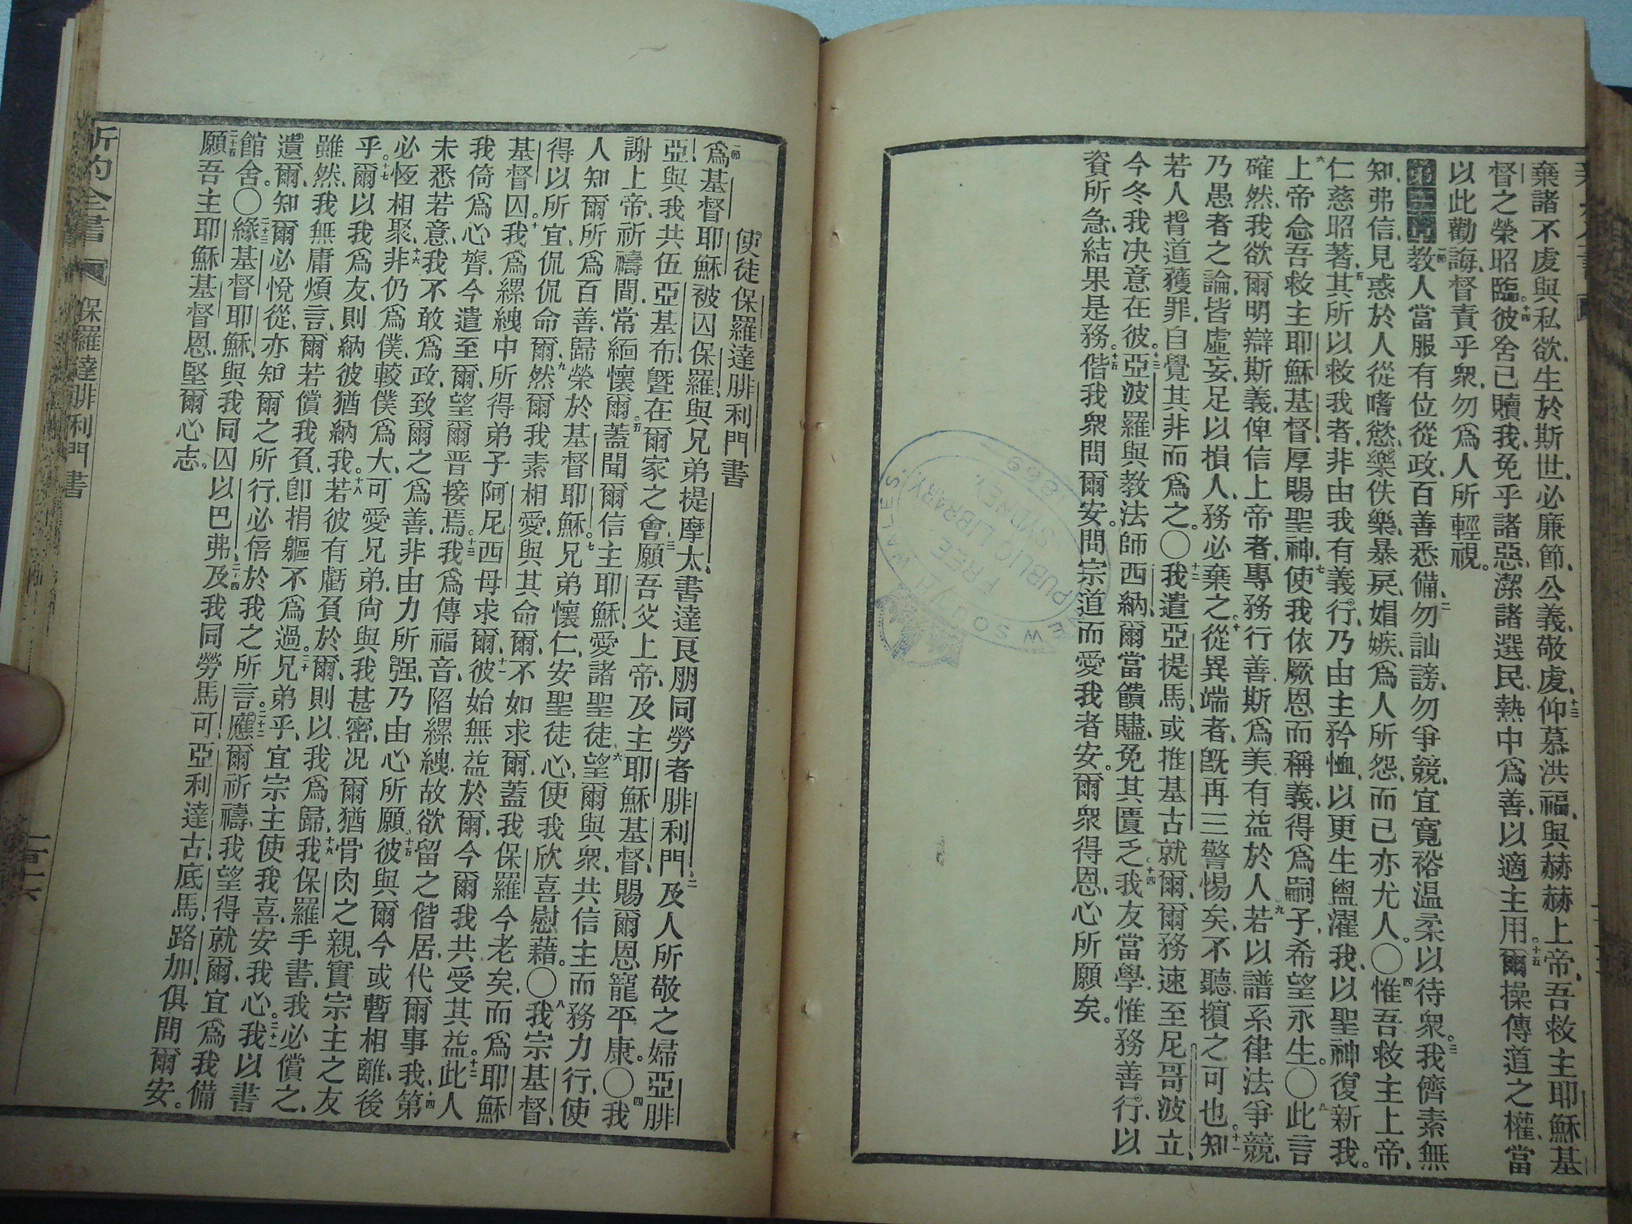 棄諸不虔與私欲生於斯世必廉節公義敬虔十三仰慕洪福與赫赫上帝吾救主耶穌基
督之榮昭臨十四彼舍己贖我免乎諸惡潔諸選民熱中爲善以適主用十五爾操傳道之權當
以此勸誨督責乎衆勿爲人所輕視
第三章教人當服有位從政百善悉備二勿訕謗勿爭競宜寬裕溫柔以待衆三我儕素無
知弗信見惑於人從嗜慾樂佚樂暴戾媢嫉爲人所怨而已亦尤人〇四惟吾救主上帝
仁慈昭著五其所以救我者非由我有義行乃由主矜恤以更生盥濯我以聖神復新我
六上帝念吾救主耶穌基督厚賜聖神七使我依厥恩而稱義得爲嗣子希望永生〇八此言
確然我欲爾明辯斯義俾信上帝者專務行善斯爲美有益於人九若以譜系律法爭競
乃愚者之論皆虛妄足以損人務必棄之十從異端者旣再三警惕矣不聽擯之可也十一知
若人背道獲罪自覺其非而爲之〇十二我遣亞提馬或推基古就爾爾務速至尼哥波立
今冬我决意在彼十三亞波羅與教法師西納爾當饋贐免其匱乏十四我友當學惟務善行以
資所急結果是務十五偕我衆問爾安問宗道而愛我者安爾衆得恩心所願矣
使徒保羅達腓利門書
一節爲基督耶穌被囚保羅與兄弟提摩太書達良朋同勞者腓利門二及人所敬之婦亞腓
亞與我共伍亞基布曁在爾家之會三願吾父上帝及主耶穌基督賜爾恩寵平康〇四我
謝上帝祈禱間常緬懷爾五蓋聞爾信主耶穌愛諸聖徒六望爾與衆共信主而務力行使
人知爾所爲百善歸榮於基督耶穌七兄弟懷仁安聖徒心使我欣喜慰藉〇八我宗基督
得以所宜侃侃命爾九然爾我素相愛與其命爾不如求爾蓋我保羅今老矣而爲耶穌
基督囚十我爲縲絏中所得弟子阿尼西母求爾十一彼始無益於爾今爾我共受其益十二此人
我倚爲心膂今遣至爾望爾晋接焉十三我爲傳福音陷縲絏故欲留之偕居代爾事我十四第
未悉若意我不敢爲政致爾之爲善非由力所强乃由心所願十五彼與爾今或暫相離後
必恆相聚十六非仍爲僕較僕爲大可愛兄弟尙與我甚密况爾猶骨肉之親實宗主之友
乎十七爾以我爲友則納彼猶納我十八若彼有虧負於爾則以我爲歸十九我保羅手書我必償之
雖然我無庸煩言爾若償我負卽捐軀不爲過二十兄弟乎宜宗主使我喜安我心二十一我以書
遺爾知爾必悅從亦知爾之所行必倍於我之所言二十二應爾祈禱我望得就爾宜爲我備
館舍〇二十三緣基督耶穌與我同囚以巴弗二十四及我同勞馬可亞利達古底馬路加俱問爾安
二十五願吾主耶穌基督恩堅爾心志
新約全書 保羅達腓利門書
NEW SOUTH WALES
FREE
PUBLIC LIBRARY
SYDNEY